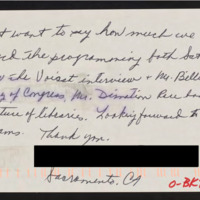 t want to say how much we
ed the programming both Sat
the Voisst interview & Mr. Bill
y of Congress, Mr. Dimation Rare boo
ture of libraries. Looking forward to
ams. Thank you.
Sacramento, CA
O-BK